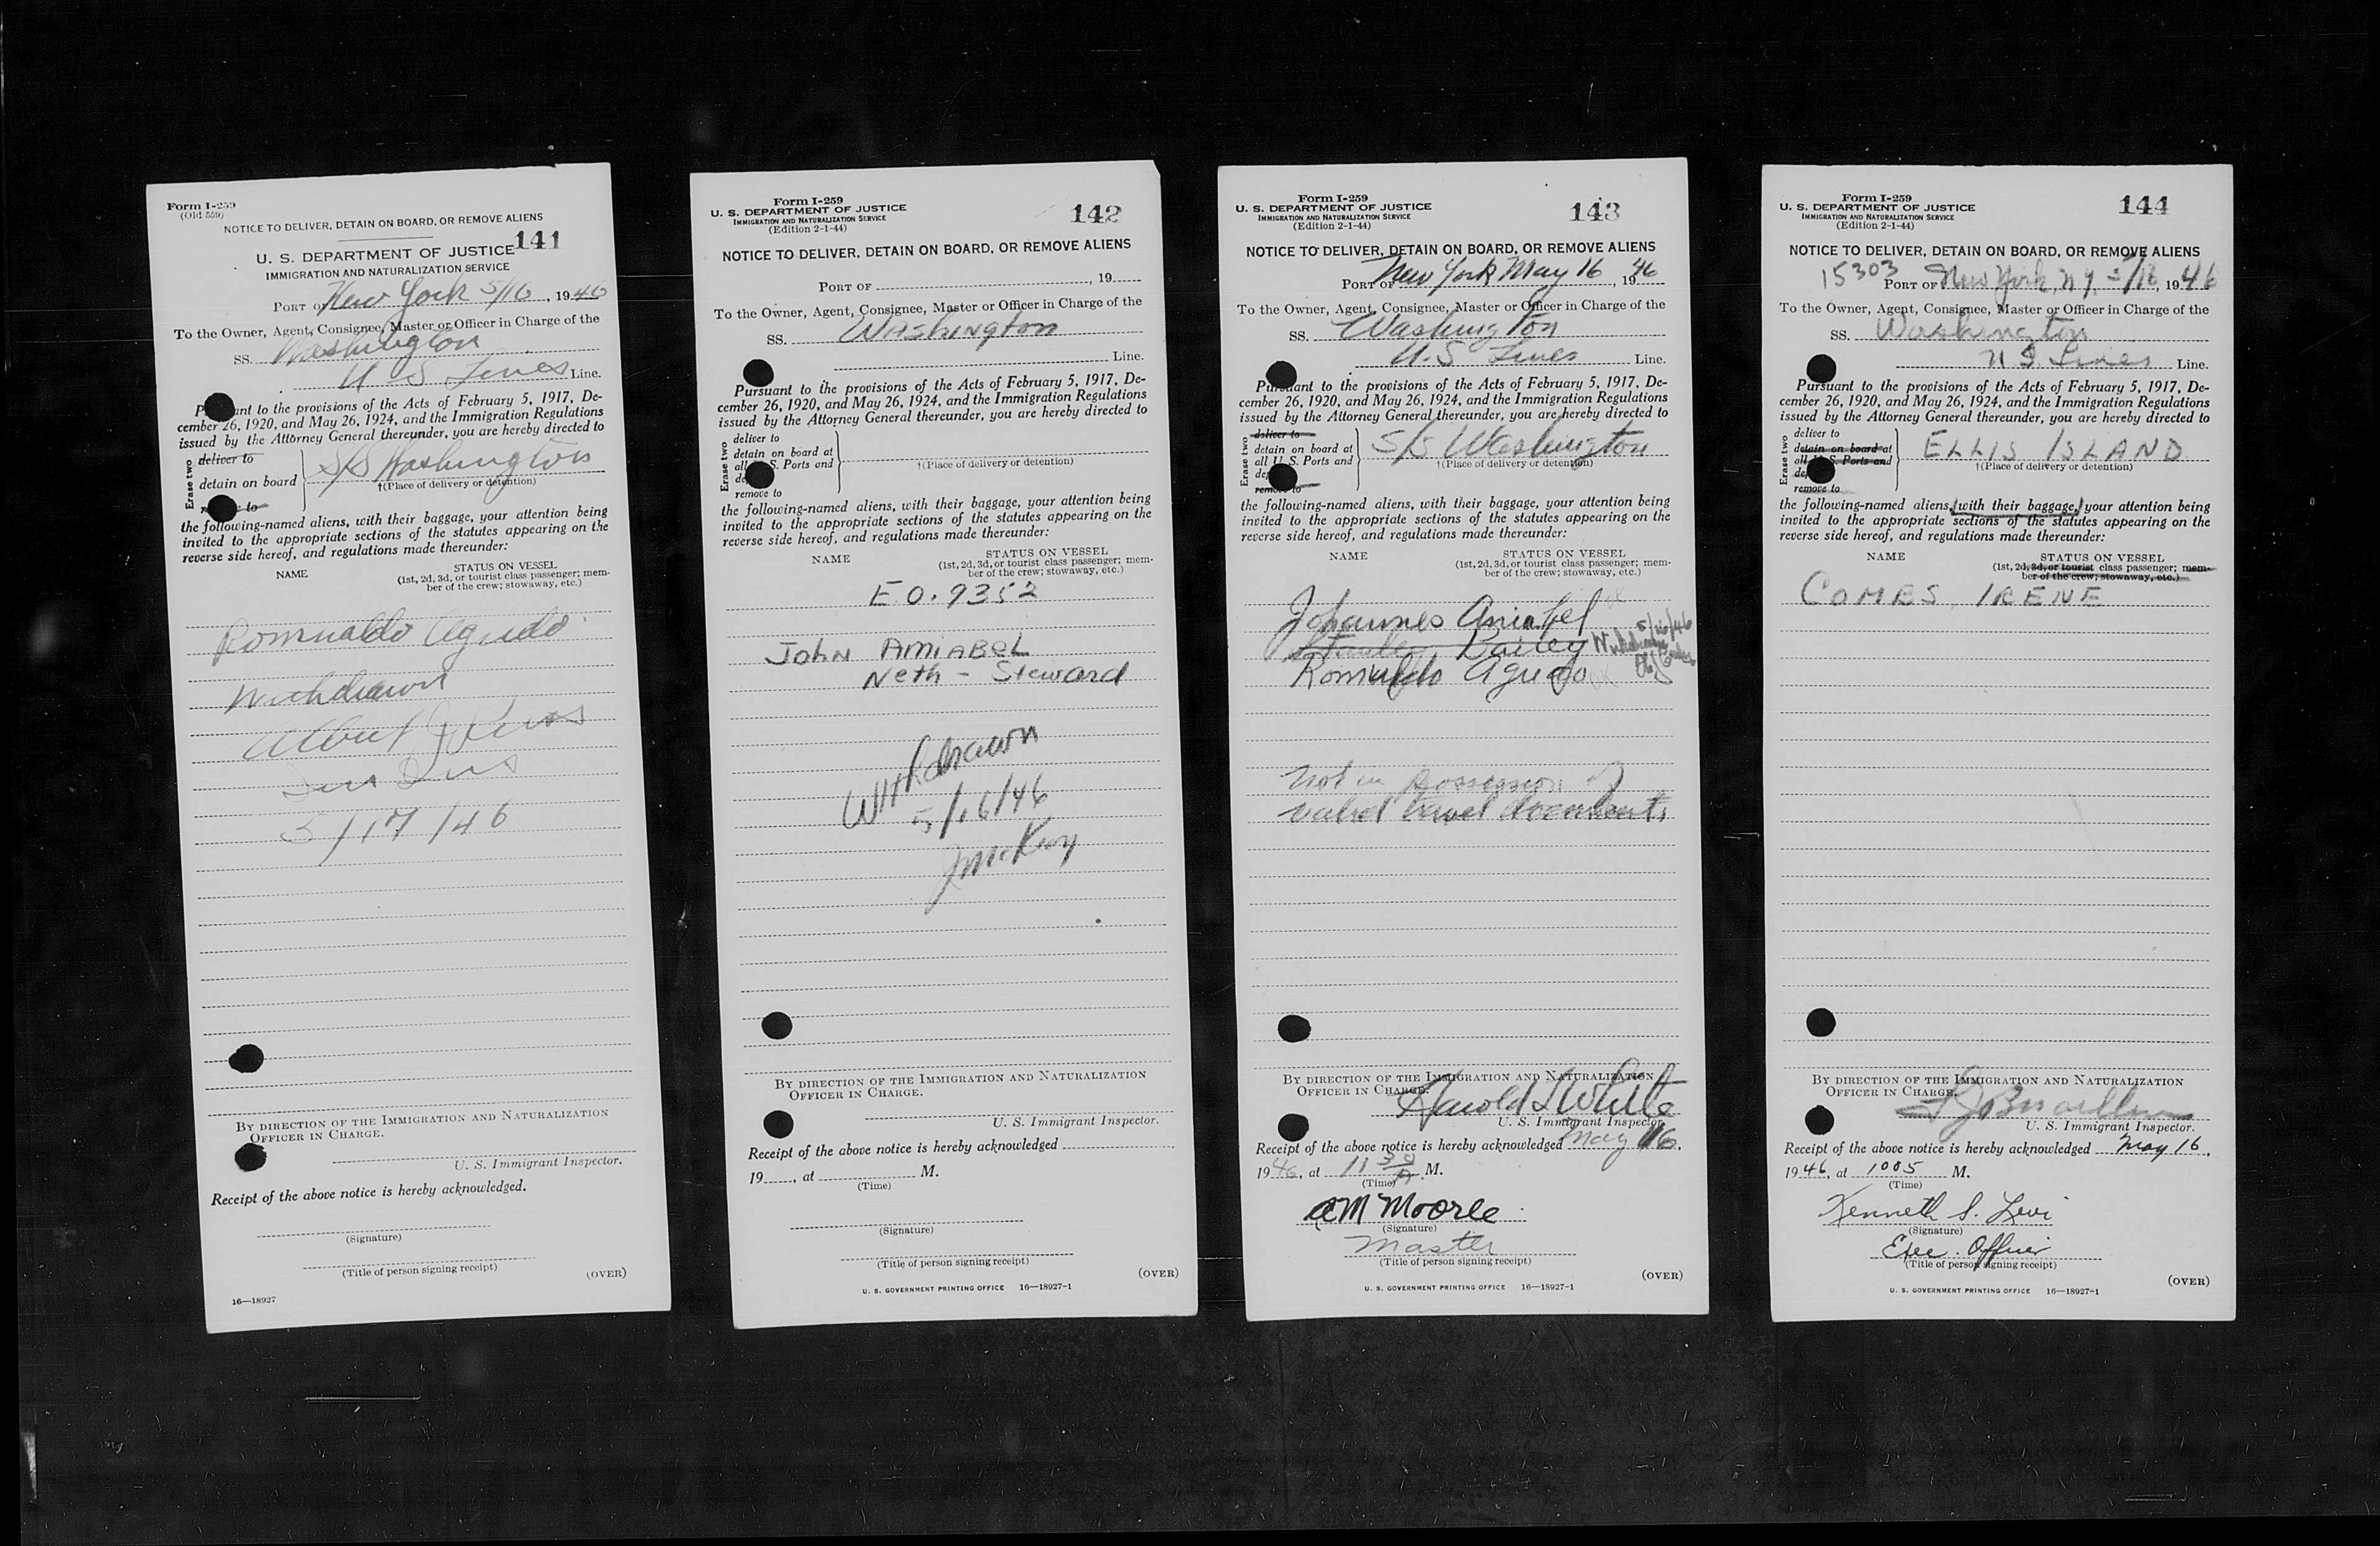 Form I-259
(Old 559)
NOTICE TO DELIVER, DETAIN ON BOARD, OR REMOVE ALIENS
141
U. S. DEPARTMENT OF JUSTICE
IMMIGRATION AND NATURALIZATION SERVICE
PORT OF New York 5/16, 1946
To the Owner, Agent, Consignee, Master or Officer in Charge of the
SS. Washington
U-S Lines Line.
Pursuant to the provisions of the Acts of February 5, 1917, De-
cember 26, 1920, and May 26, 1924, and the Immigration Regulations
issued by the Attorney General thereunder, you are hereby directed to
Erase two
deliver to
detain on board
S/S Washington
†(Place of delivery or detention)
to
the following-named aliens, with their baggage, your attention being
invited to the appropriate sections of the statutes appearing on the
reverse side hereof, and regulations made thereunder:
NAME
STATUS ON VESSEL
(1st, 2d, 3d, or tourist class passenger; mem-
ber of the crew; stowaway, etc.)
Romualdo Agudo
Withdrawn
Albert J
5/17/46
BY DIRECTION OF THE IMMIGRATION AND NATURALIZATION
OFFICER IN CHARGE.
U. S. Immigrant Inspector.
Receipt of the above notice is hereby acknowledged.
(Signature)
(Title of person signing receipt)
(OVER)
16—18927
Form I-259
U. S. DEPARTMENT OF JUSTICE
IMMIGRATION AND NATURALIZATION SERVICE
(Edition 2-1-44)
142
NOTICE TO DELIVER, DETAIN ON BOARD, OR REMOVE ALIENS
PORT OF , 19
To the Owner, Agent, Consignee, Master or Officer in Charge of the
SS. Washington
Line.
Pursuant to the provisions of the Acts of February 5, 1917, De-
cember 26, 1920, and May 26, 1924, and the Immigration Regulations
issued by the Attorney General thereunder, you are hereby directed to
Erase two
deliver to
detain on board at
all U.S. Ports and
de
remove to
†(Place of delivery or detention)
the following-named aliens, with their baggage, your attention being
invited to the appropriate sections of the statutes appearing on the
reverse side hereof, and regulations made thereunder:
NAME
STATUS ON VESSEL
(1st, 2d, 3d, or tourist class passenger; mem-
ber of the crew; stowaway, etc.)
E O. 9352
JOHN AMIABEL
Neth - Steward
Withdrawn
5/16/46
J McKay
BY DIRECTION OF THE IMMIGRATION AND NATURALIZATION
OFFICER IN CHARGE.
U. S. Immigrant Inspector.
Receipt of the above notice is hereby acknowledged
19 , at M.
(Time)
(Signature)
(Title of person signing receipt)
U. S. GOVERNMENT PRINTING OFFICE 16—18927-1
(OVER)
Form I-259
U. S. DEPARTMENT OF JUSTICE
IMMIGRATION AND NATURALIZATION SERVICE
(Edition 2-1-44)
143
NOTICE TO DELIVER, DETAIN ON BOARD, OR REMOVE ALIENS
PORT OF New York May 16 1946
To the Owner, Agent, Consignee, Master or Officer in Charge of the
SS. Washington
U.S Lines Line.
Pursuant to the provisions of the Acts of February 5, 1917, De-
cember 26, 1920, and May 26, 1924, and the Immigration Regulations
issued by the Attorney General thereunder, you are hereby directed to
Erase two
deliver to
detain on board at
all U.S. Ports and
de
remove to
S/S Washington
†(Place of delivery or detention)
the following-named aliens, with their baggage, your attention being
invited to the appropriate sections of the statutes appearing on the
reverse side hereof, and regulations made thereunder:
NAME
STATUS ON VESSEL
(1st, 2d, 3d, or tourist class passenger; mem-
ber of the crew; stowaway, etc.)
Johannes Amiabel
Stanley Bailey Withdrawn 5/16/46
Romualdo Agudo
not in possession of
valid travel documents
BY DIRECTION OF THE IMMIGRATION AND NATURALIZATION
OFFICER IN CHARGE.
Harold L White
U. S. Immigrant Inspector.
Receipt of the above notice is hereby acknowledged May 16,
1946, at 11 30 A. M.
(Time)
M Moore
(Signature)
Master
(Title of person signing receipt)
U. S. GOVERNMENT PRINTING OFFICE 16—18927-1
(OVER)
Form I-259
U. S. DEPARTMENT OF JUSTICE
IMMIGRATION AND NATURALIZATION SERVICE
(Edition 2-1-44)
144
NOTICE TO DELIVER, DETAIN ON BOARD, OR REMOVE ALIENS
15303
PORT OF New York, N.Y. 5/16, 1946
To the Owner, Agent, Consignee, Master or Officer in Charge of the
SS. Washington
U.S. Lines Line.
Pursuant to the provisions of the Acts of February 5, 1917, De-
cember 26, 1920, and May 26, 1924, and the Immigration Regulations
issued by the Attorney General thereunder, you are hereby directed to
Erase two
deliver to
detain on board at
all U.S. Ports and
de
remove to
ELLIS ISLAND
†(Place of delivery or detention)
the following-named aliens, (with their baggage,) your attention being
invited to the appropriate sections of the statutes appearing on the
reverse side hereof, and regulations made thereunder:
NAME
STATUS ON VESSEL
(1st, 2d, 3d, or tourist class passenger; mem-
ber of the crew; stowaway, etc.)
COMBS, IRENE
BY DIRECTION OF THE IMMIGRATION AND NATURALIZATION
OFFICER IN CHARGE.
U. S. Immigrant Inspector.
Receipt of the above notice is hereby acknowledged May 16,
1946, at 1005 M.
(Time)
Kenneth S. Levi
(Signature)
Exec. Officer
(Title of person signing receipt)
(OVER)
U. S. GOVERNMENT PRINTING OFFICE 16—18927-1